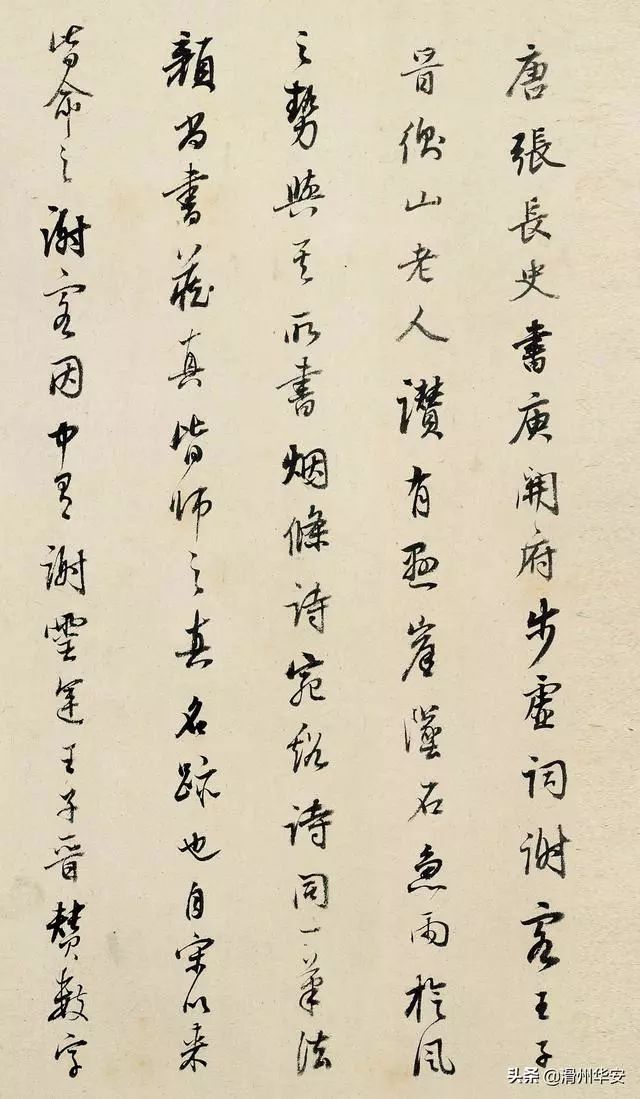 唐張長史書庾開府步虛詞謝客王子
晉衡山老人讚有懸崖墜石急雨旋風
之勢與其所書烟條詩宛谿詩同一筆法
顏尚書藏真皆師之真名跡也自宋以來
皆命之謝客因中有謝靈運王子晉贊數字
头条 @滑州华安